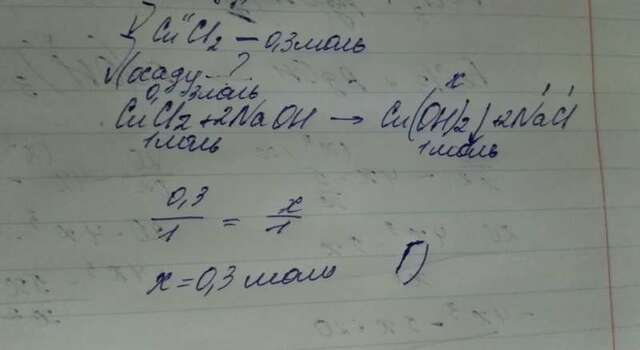 CuCl2 – 0,3 моль
осаду – ?
0,3 моль x
CuCl2 + 2NaOH → Cu(OH)2↓ + 2NaCl
1 моль 1 моль
0,3/1 = x/1
x = 0,3 моль Г)